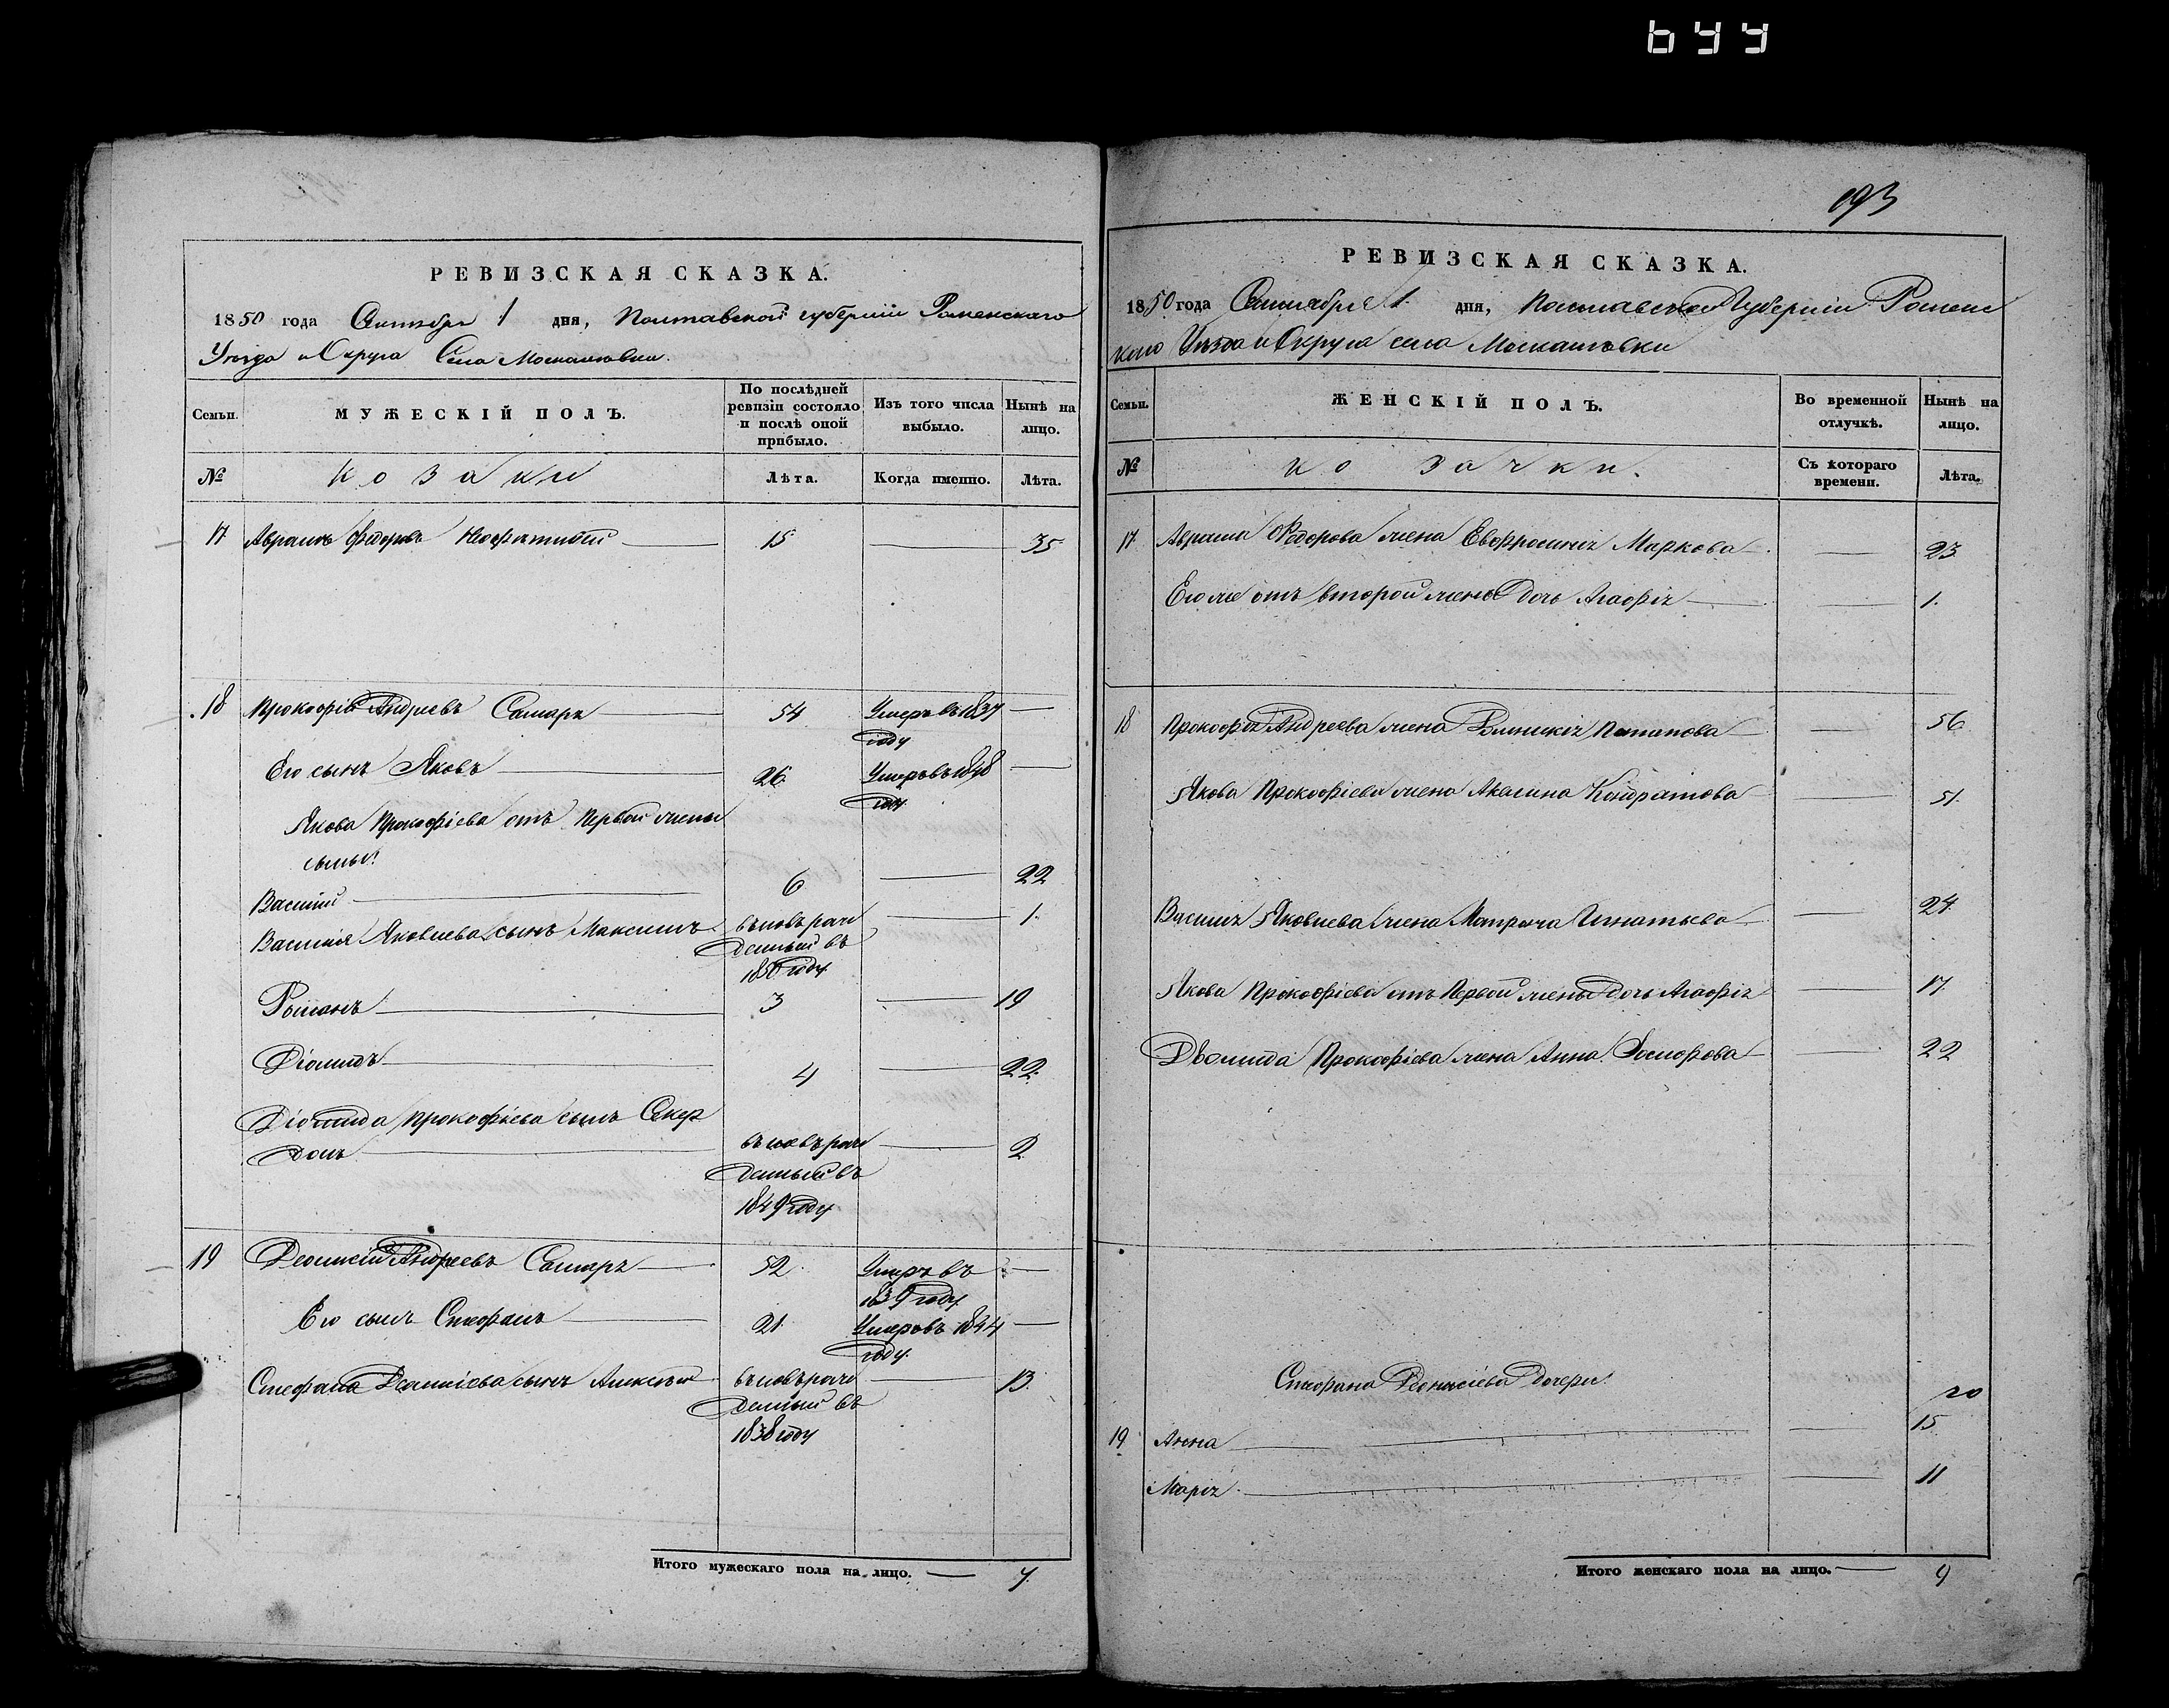 644
193
РЕВИЗСКАЯ СКАЗКА.
1850 года Сентября 1 дня, Полтавской губерніи Роменскаго
Уѣзда и Округа Села Москалювки.
Семьи.
МУЖЕСКІЙ ПОЛЪ.
По послѣдней ревизіи состояло и послѣ оной прибыло.
Изъ того числа выбыло.
Нынѣ на лицо.
№
козаки
Лѣта.
Когда именно.
Лѣта.
17 Аврамъ Федоровъ 15 — 35
18 Прокофій Андреевъ Самаръ 54 Умеръ въ 1837 году —
Его сынъ Яковъ 26 Умеръ въ 1848 году —
Якова Прокофіева отъ первой жены
сыны
Василій 6 — 22
Василія Яковлева сынъ Максимъ вновь рожденный въ 1850 году — 1.
Романъ 3 — 19
Діомидъ 4 — 22
Діомида Прокофіева сынъ
вновь рожденный въ 1849 году — 2
19 Деонисій Андреевъ Самаръ 52 Умеръ въ 1839 году —
Его сынъ Стефанъ 21 Умеръ въ 1844 году —
Стефана Деонисіева сынъ Алексѣй вновь рожденный въ 1838 году — 13
Итого мужескаго пола на лицо. — 7.
РЕВИЗСКАЯ СКАЗКА.
1850 года Сентября 1. дня, Полтавской Губерніи Роменс
каго Уѣзда и Округа села Москалювки
Семьи.
ЖЕНСКІЙ ПОЛЪ.
Во временной отлучкѣ.
Нынѣ на лицо.
№
козачки.
Съ котораго времени.
Лѣта.
17 Аврама Федорова жена Евфросинія Маркова — 23
Его же отъ второй жены дочь Агафія — 1.
18 Прокофія Андреева жена Потапова — 56
Якова Прокофіева жена Акелина Кондратова — 51.
Василія Яковлева жена Матрона Игнатьева — 24
Якова Прокофіева отъ первой жены дочь Агафія — 17
Діомида Прокофіева жена Анна — 22
Стефана Деонисіева дочери
20
19 Анна — 15
Марія — 11
Итого женскаго пола на лицо. — 9